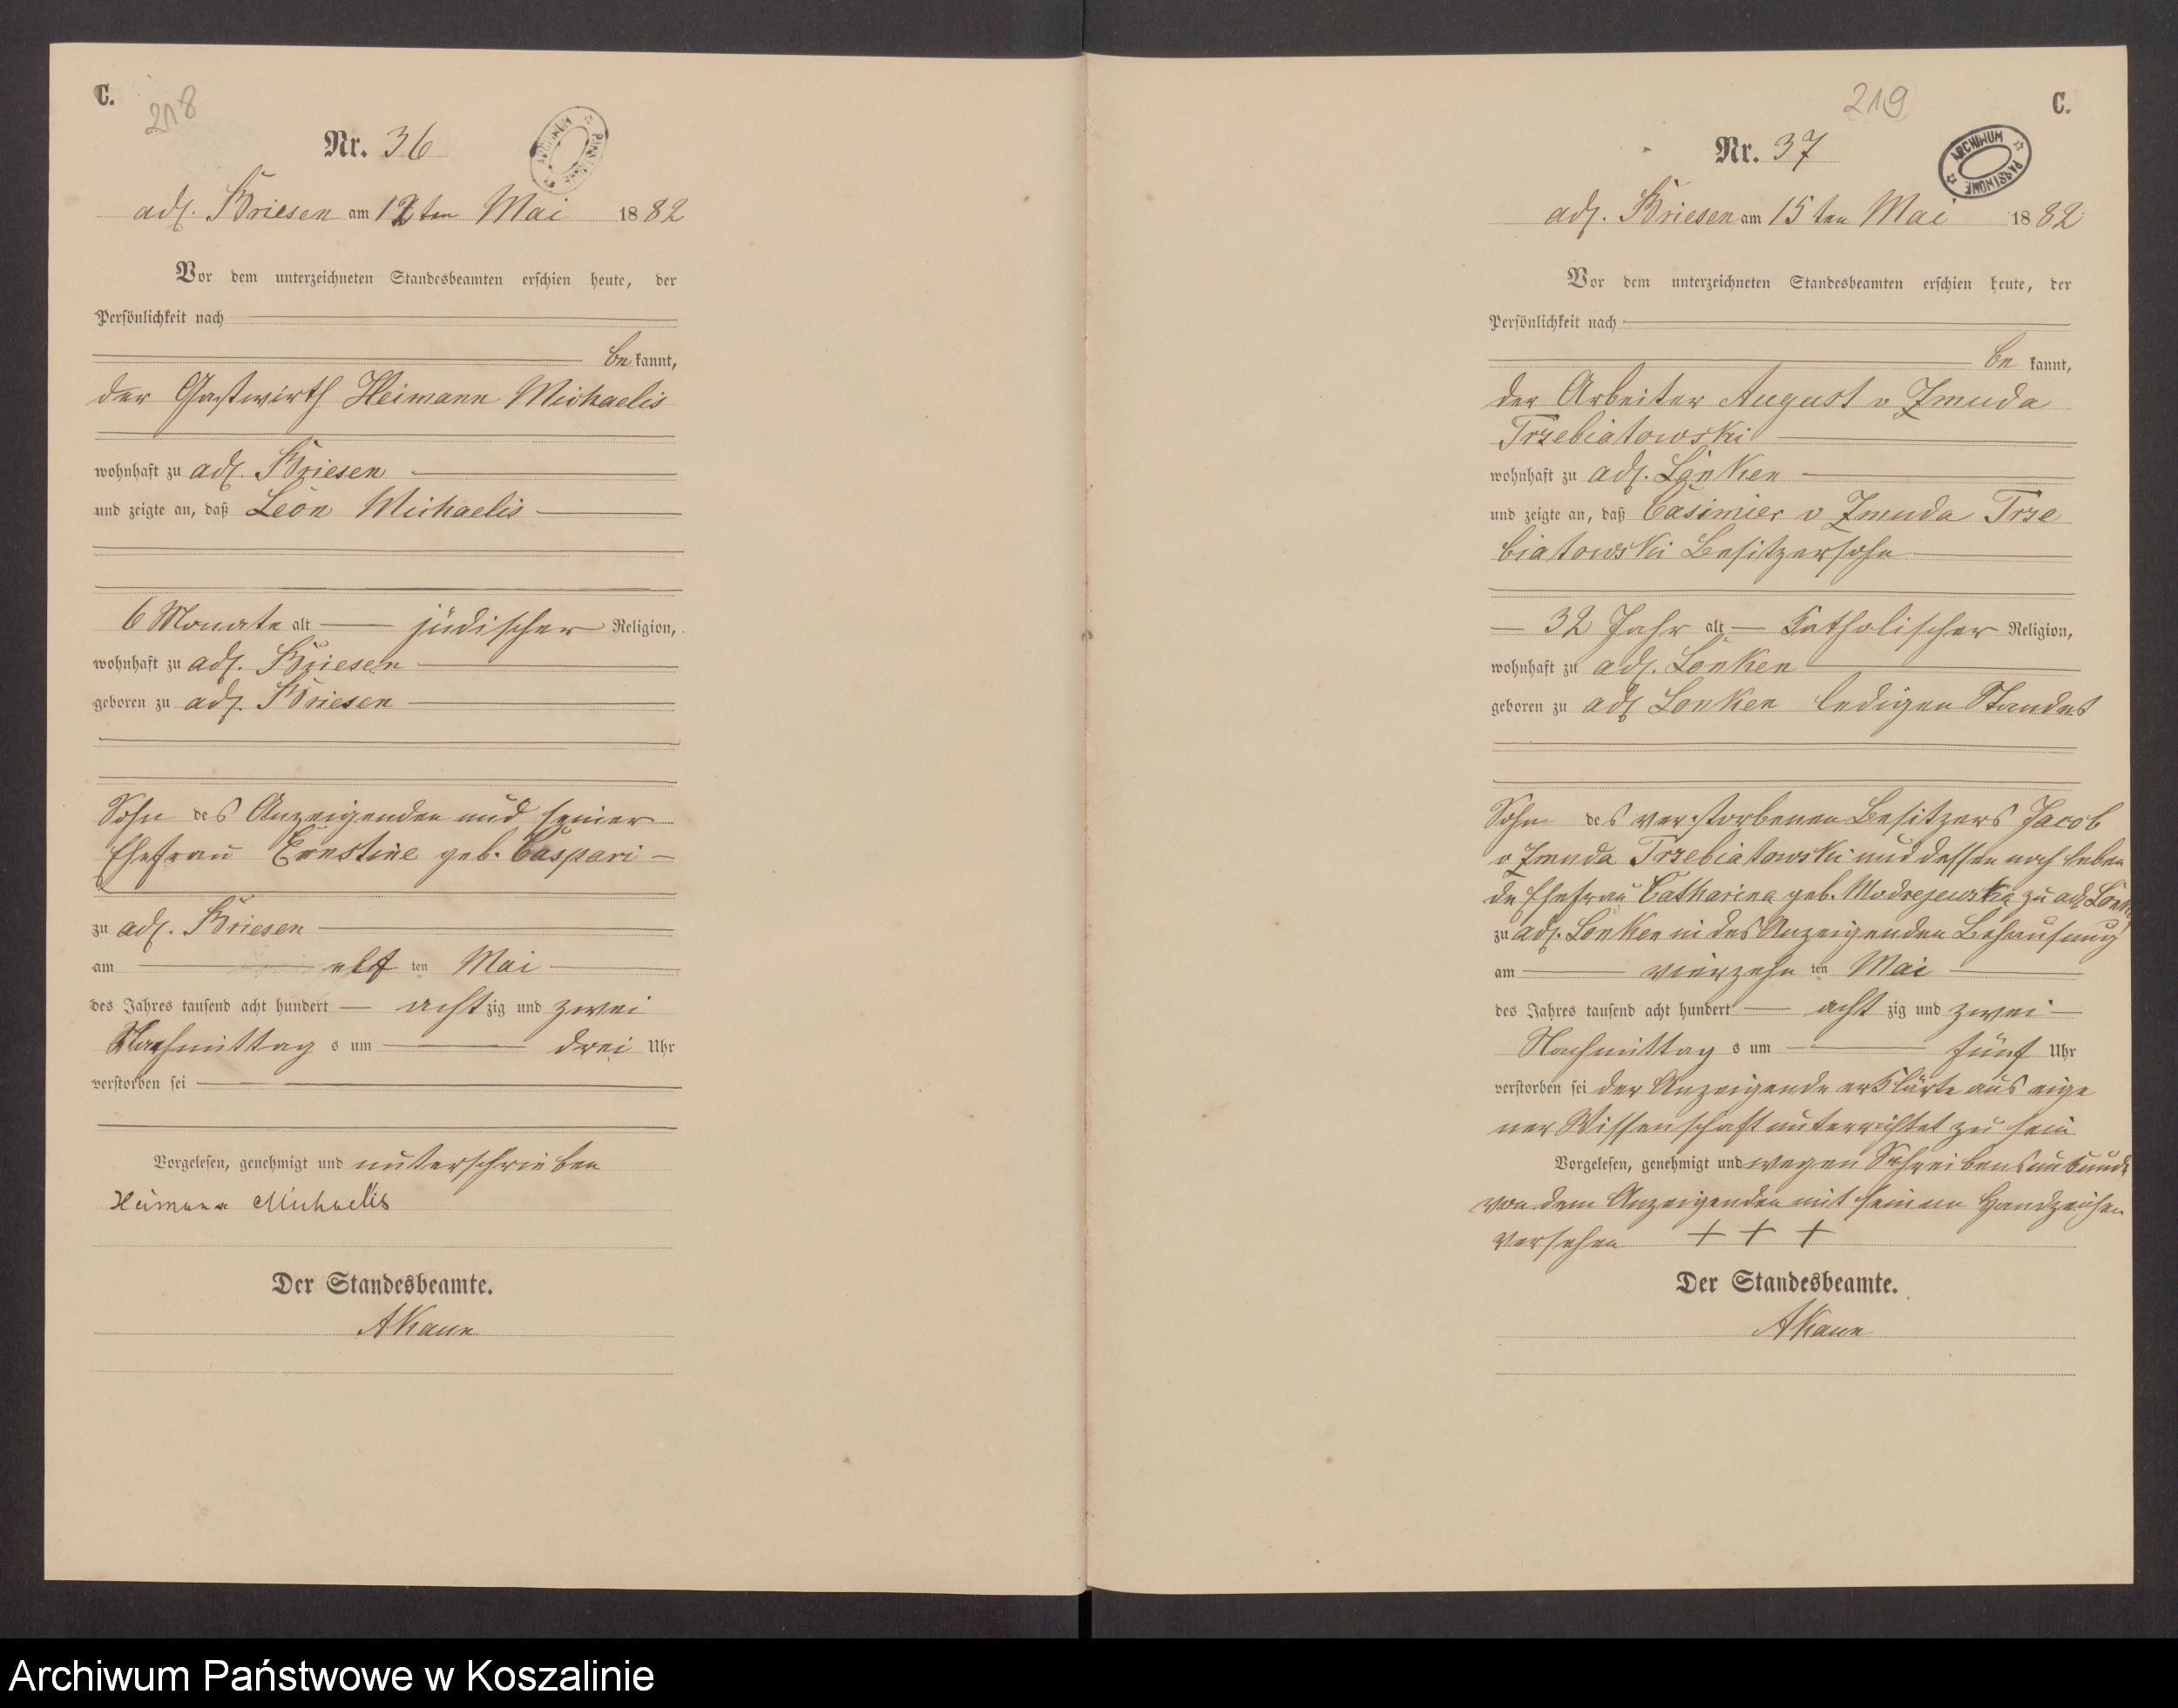 C.
218
Nr. 36
ARCHIWUM PAŃSTWOWE
adl. Briesen am 12ten Mai 1882
Vor dem unterzeichneten Standesbeamten erschien heute, der
Persönlichkeit nach
be kannt,
der Gastwirth Heimann Michaelis
wohnhaft zu adl. Briesen
und zeigte an, daß Leon Michaelis
6 Monate alt jüdischer Religion,
wohnhaft zu adl. Briesen
geboren zu adl. Briesen
Sohn des Anzeigenden und seiner
Ehefrau Ernstine geb. Caspari
zu adl. Briesen
am elf ten Mai
des Jahres tausend acht hundert acht zig und zwei
Nachmittag s um drei Uhr
verstorben sei
Vorgelesen, genehmigt und unterschrieben
Heimann Michaelis
Der Standesbeamte.
AKaun
219
C.
Nr. 37
ARCHIWUM PAŃSTWOWE
adl. Briesen am 15ten Mai 1882
Vor dem unterzeichneten Standesbeamten erschien heute, der
Persönlichkeit nach
be kannt,
der Arbeiter August v Zmuda
Trzebiatowski
wohnhaft zu adl. Lonken
und zeigte an, daß Casimier v Zmuda Trze
biatowski Besitzersohn
32 Jahr alt Katholischer Religion,
wohnhaft zu adl. Lonken
geboren zu adl Lonken ledigen Standes
Sohn des verstorbenen Besitzers Jacob
v Zmuda Trzebiatowski und dessen noch leben
de Ehefrau Catharina geb. Modrejewska zu adl Lonken
zu adl. Lonken in des Anzeigenden Behausung
am vierzehn ten Mai
des Jahres tausend acht hundert acht zig und zwei
Nachmittag s um fünf Uhr
verstorben sei der Anzeigende erklärte aus eige
ner Wissenschaft unterrichtet zu sein
Vorgelesen, genehmigt und wegen Schreibensunkunde
von dem Anzeigenden mit seinem Handzeichen
versehen + + +
Der Standesbeamte.
AKaun
Archiwum Państwowe w Koszalinie